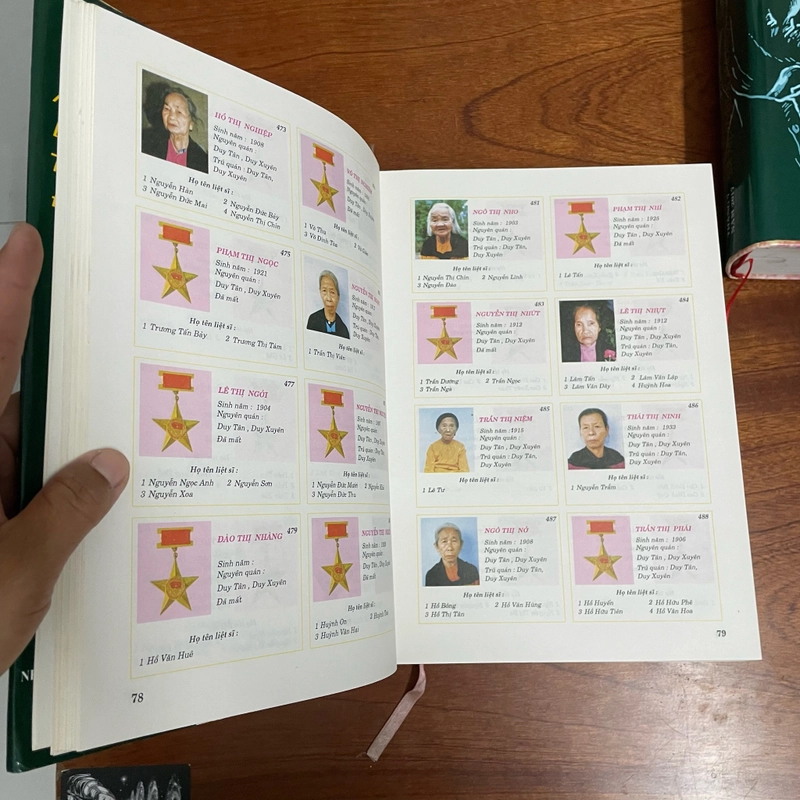 473
HỒ THỊ NGHIỆP
Sinh năm : 1908
Nguyên quán :
Duy Tân , Duy Xuyên
Trú quán : Duy Tân,
Duy Xuyên
Họ tên liệt sĩ :
1 Nguyễn Hàn 2 Nguyễn Đức Bảy
3 Nguyễn Đức Mai 4 Nguyễn Thị Chín
VÕ THỊ
Sinh năm :
Nguyên quán
Duy Tân
Họ tên liệt sĩ :
1 Võ Thu
3 Võ Đình Tòa
475
PHẠM THỊ NGỌC
Sinh năm : 1921
Nguyên quán :
Duy Tân , Duy Xuyên
Đã mất
Họ tên liệt sĩ :
1 Trương Tấn Bảy 2 Trương Thị Tám
NGUYỄN THỊ
Họ tên liệt sĩ :
1 Trần Thị Viên
477
LÊ THỊ NGÓI
Sinh năm : 1904
Nguyên quán :
Duy Tân , Duy Xuyên
Đã mất
Họ tên liệt sĩ :
1 Nguyễn Ngọc Anh 2 Nguyễn Sơn
3 Nguyễn Xoa
NGUYỄN THỊ
Sinh năm :
Nguyên quán :
Duy Tân , Duy
Trú quán : Duy
Duy Xuyên
Họ tên liệt sĩ :
1 Nguyễn Đức Mười 2 Nguyễn
3 Nguyễn Đức Thu
479
ĐÀO THỊ NHÀNG
Sinh năm :
Nguyên quán :
Duy Tân , Duy Xuyên
Đã mất
Họ tên liệt sĩ :
1 Hồ Văn Huê
NGUYỄN THỊ
Sinh năm :
Nguyên quán :
Duy Tân , Duy
Đã mất
Họ tên liệt sĩ :
1 Huỳnh Ơn 2 Huỳnh
3 Huỳnh Văn Hai
78
481
NGÔ THỊ NHO
Sinh năm : 1903
Nguyên quán :
Duy Tân , Duy Xuyên
Trú quán : Duy Tân,
Duy Xuyên
Họ tên liệt sĩ :
1 Nguyễn Thị Chín 2 Nguyễn Linh
3 Nguyễn Đáo
482
PHẠM THỊ NHÌ
Sinh năm : 1925
Nguyên quán :
Duy Tân , Duy Xuyên
Đã mất
Họ tên liệt sĩ :
1 Lê Tấn
483
NGUYỄN THỊ NHÚT
Sinh năm : 1912
Nguyên quán :
Duy Tân , Duy Xuyên
Đã mất
Họ tên liệt sĩ :
1 Trần Dưỡng 2 Trần Ngọc
3 Trần Ngũ
484
LÊ THỊ NHỰT
Sinh năm : 1912
Nguyên quán :
Duy Tân , Duy Xuyên
Trú quán : Duy Tân,
Duy Xuyên
Họ tên liệt sĩ :
1 Lâm Tấn 2 Lâm Văn Lập
3 Lâm Văn Dây 4 Huỳnh Hoa
485
TRẦN THỊ NIỆM
Sinh năm : 1915
Nguyên quán :
Duy Tân , Duy Xuyên
Trú quán : Duy Tân,
Duy Xuyên
Họ tên liệt sĩ :
1 Lê Tư
486
THÁI THỊ NINH
Sinh năm : 1933
Nguyên quán :
Duy Tân , Duy Xuyên
Trú quán : Duy Tân,
Duy Xuyên
Họ tên liệt sĩ :
1 Nguyễn Trầm
487
NGÔ THỊ NỞ
Sinh năm : 1908
Nguyên quán :
Duy Tân , Duy Xuyên
Trú quán : Duy Tân,
Duy Xuyên
Họ tên liệt sĩ :
1 Hồ Bông 2 Hồ Văn Hùng
3 Hồ Thị Tân
488
TRẦN THỊ PHẢI
Sinh năm : 1906
Nguyên quán :
Duy Tân , Duy Xuyên
Trú quán : Duy Tân,
Duy Xuyên
Họ tên liệt sĩ :
1 Hồ Huyến 2 Hồ Hữu Phê
3 Hồ Hữu Tiên 4 Hồ Văn Hoa
79